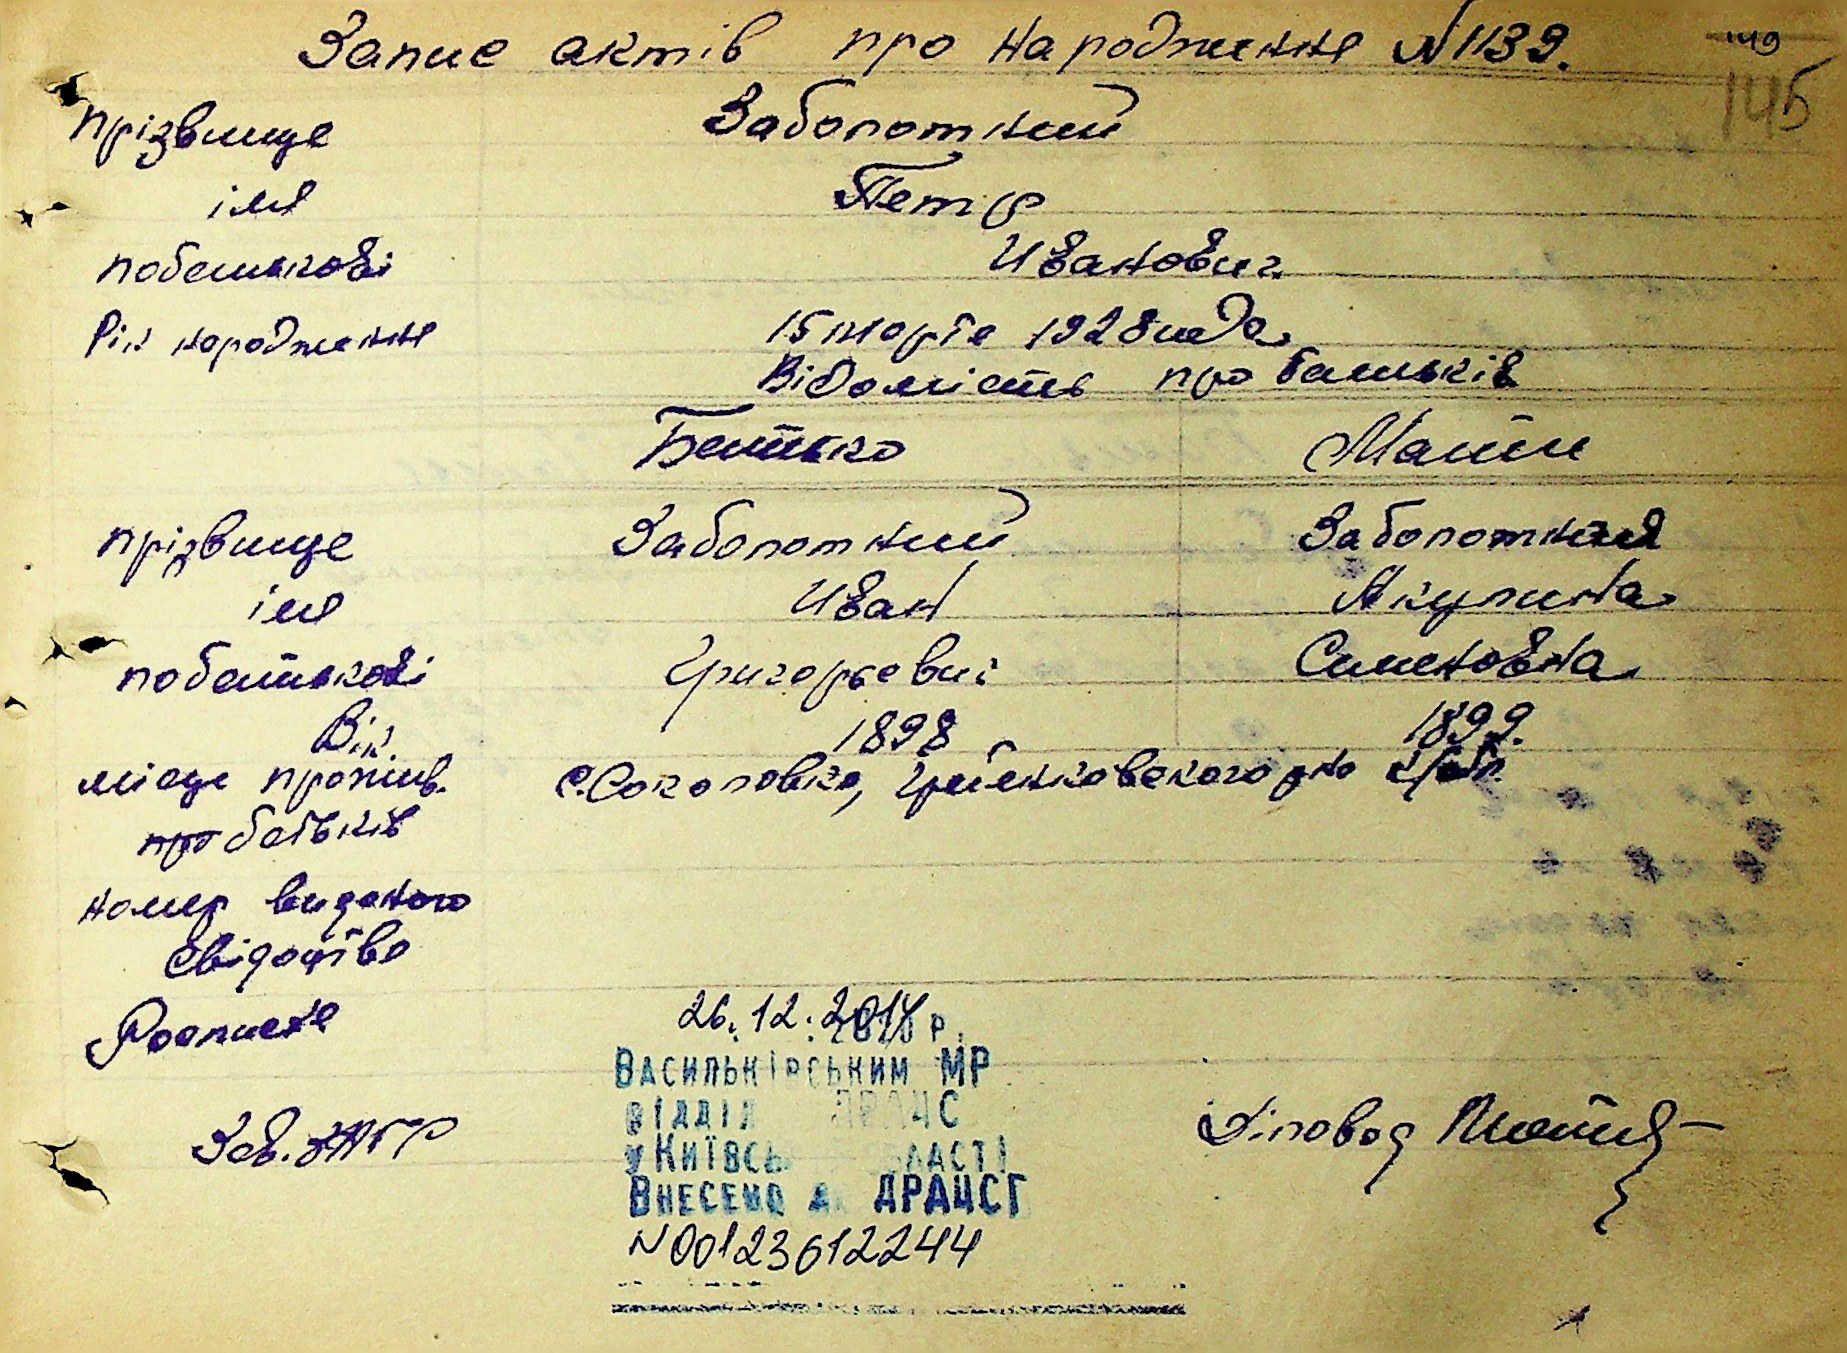 Запис актів про народження N1139.
149
145
прізвище Заболотний
імя Петр
побатькові Иванович
Рік народження 15 марта 1928 года
Відомість про батьків
Батько Мати
прізвище Заболотний Заболотная
імя Иван Акулина
побатькові Григорьевич Семеновна
Вік 1898 1899.
місце прожив. с. Соколовка, Гребенковского р-на
про батьків
номер виданого
свідоцтва
Росписка
26.12.2014
Р.
Васильківським МР
відділ ДРАЦС
у Київсь області
Зав. ЗАГС Діловод
Внесено ДРАЦСГ
N 00123612244